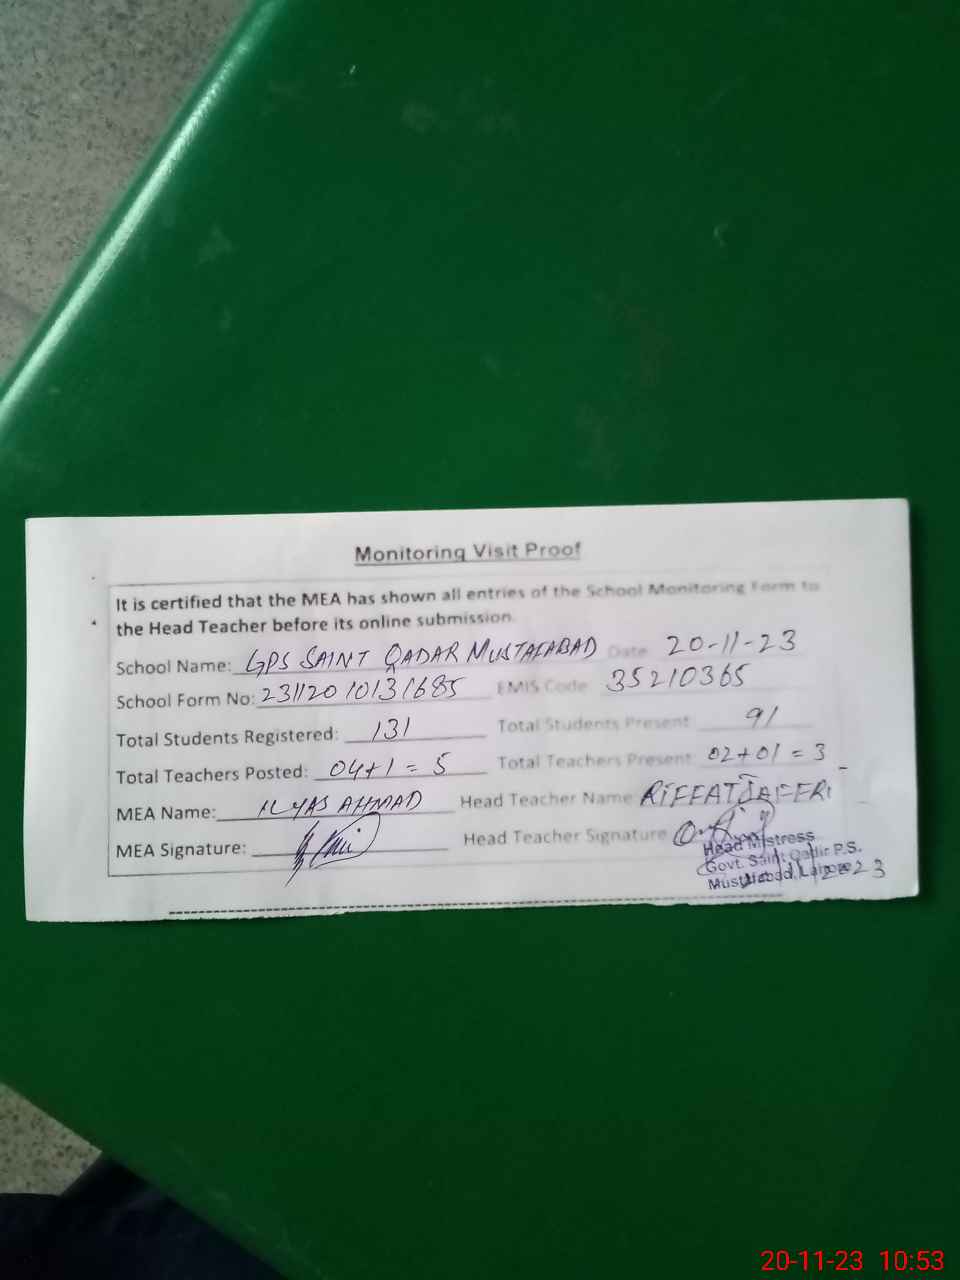 Monitoring Visit Proof
It is certified that the MEA has shown all entries of the School Monitoring Form to
the Head Teacher before its online submission.
School Name: GPS SAINT QADAR MUSTAFABAD Date 20-11-23
School Form No: 23112010131685 EMIS Code: 35210365
Total Students Registered: 131 Total Students Present 91
Total Teachers Posted: 04+1 = 5 Total Teachers Present: 02+01 = 3
MEA Name: ILYAS AHMAD Head Teacher Name RIFFAT JAFFERI
MEA Signature: Head Teacher Signature
Head Mistress
Govt. Saint Qadir P.S.
Mustafabad, Lahore
20-11-23 10:53